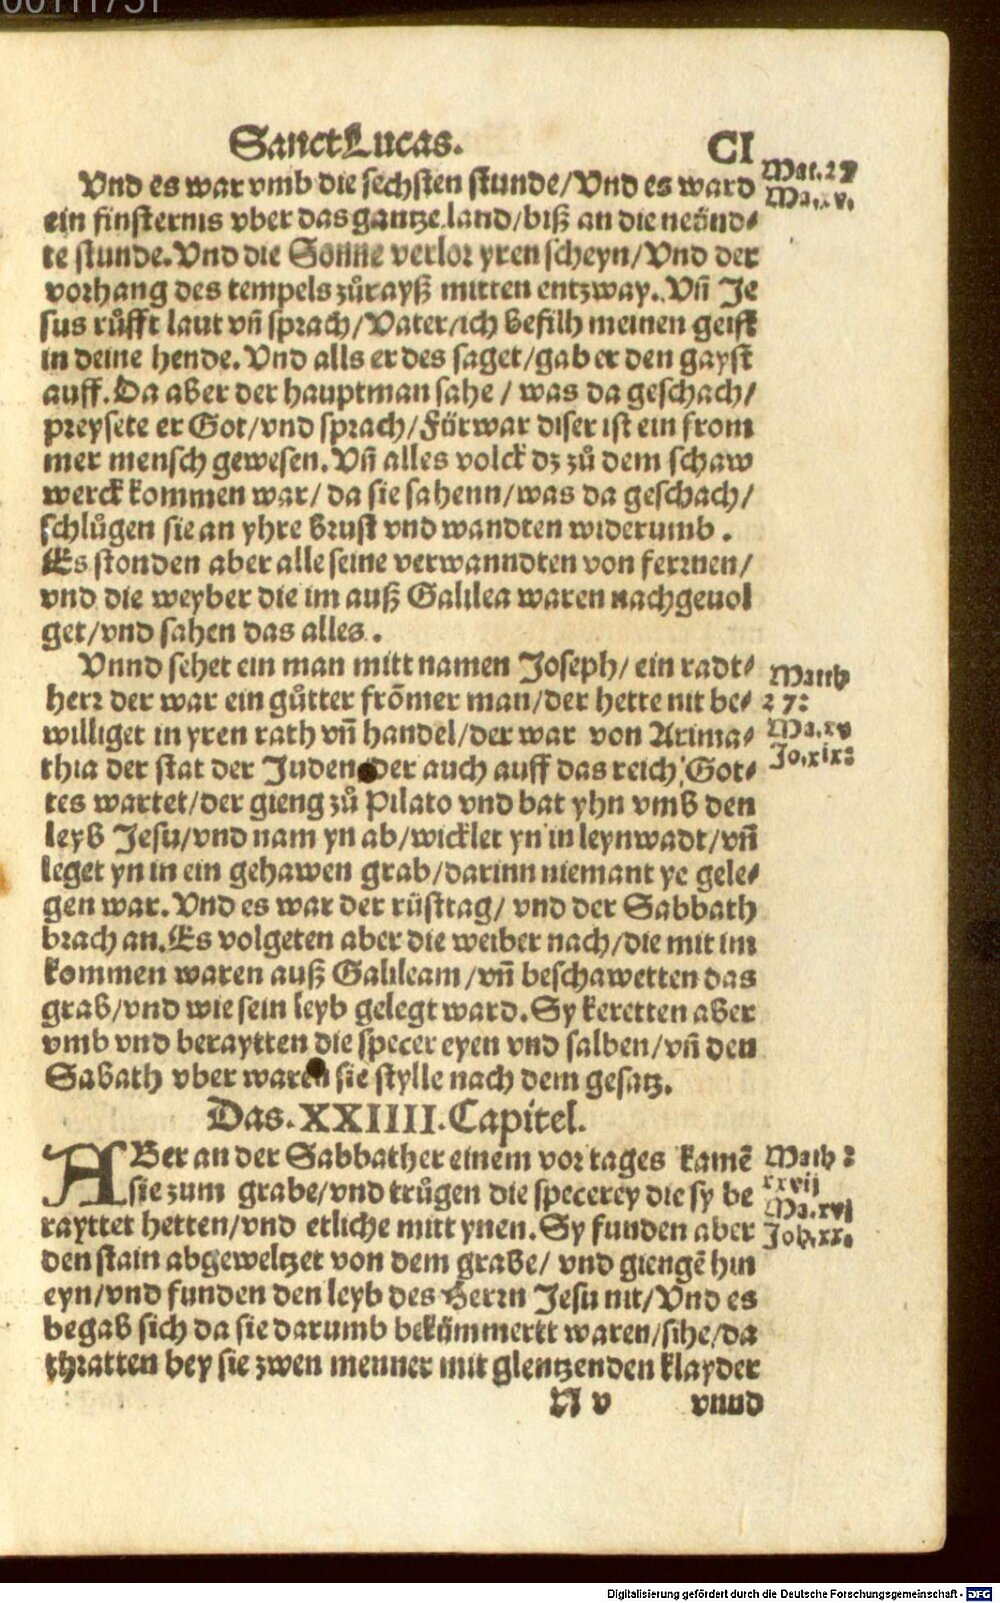 Sanct Lucas. CI
Vnd es war vmb die sechsten stunde/Vnd es ward
Mat.27
Ma.xv.
ein finsternis vber das gantze land/biß an die neünd⸗
te stunde.Vnd die Sonne verlor yren scheyn/Vnd der
vorhang des tempels zůrayß mitten entzway. Vñ Je
sus růfft laut vñ sprach/Vater/ich befilh meinen geist
in deine hende. Vnd alls er des saget/gab er den gayst
auff. Da aber der hauptman sahe / was da geschach/
preysete er Got/vnd sprach/Fürwar diser ist ein from
mer mensch gewesen. Vñ alles volck dz zů dem schaw
werck kommen war/ da sie sahenn/was da geschach/
schlůgen sie an yhre brust vnd wandten widerumb .
Es stonden aber alle seine verwanndten von ferrnen/
vnd die weyber die im auß Galilea waren nachgeuol
get/vnd sahen das alles .
Vnnd sehet ein man mitt namen Joseph/ ein radt⸗
Matth
27:
Ma.xv
Jo.xix:
herr der war ein gůtter frõmer man/der hette nit be⸗
williget in yren rath vñ handel/der war von Arima⸗
thia der stat der Juden der auch auff das reich Got⸗
tes wartet/der gieng zů Pilato vnd bat yhn vmb den
leyb Jesu/vnd nam yn ab/wicklet yn in leynwadt/vñ
leget yn in ein gehawen grab/darinn niemant ye gele⸗
gen war. Vnd es war der rüsttag/ vnd der Sabbath
brach an. Es volgeten aber die weiber nach/die mit im
kommen waren auß Galileam/vñ beschawetten das
grab/vnd wie sein leyb gelegt ward. Sy keretten aber
vmb vnd beraytten die specereyen vnd salben/vñ den
Sabath vber waren sie stylle nach dem gesatz.
Das.XXIIII.Capitel.
ABer an der Sabbather einem vor tages kamẽ
Math :
xxvij
Ma.xvj
Joh.xx.
sie zum grabe/vnd trůgen die specerey die sy be
rayttet hetten/vnd etliche mitt ynen. Sy funden aber
den stain abgeweltzet von dem grabe/ vnd giengẽ hin
eyn/vnd funden den leyb des Herrn Jesu nit/Vnd es
begab sich da sie darumb bekümmertt waren/sihe/da
thratten bey sie zwen menner mit glentzenden klayder
N v vnnd
Digitalisierung gefördert durch die Deutsche Forschungsgemeinschaft - DFG